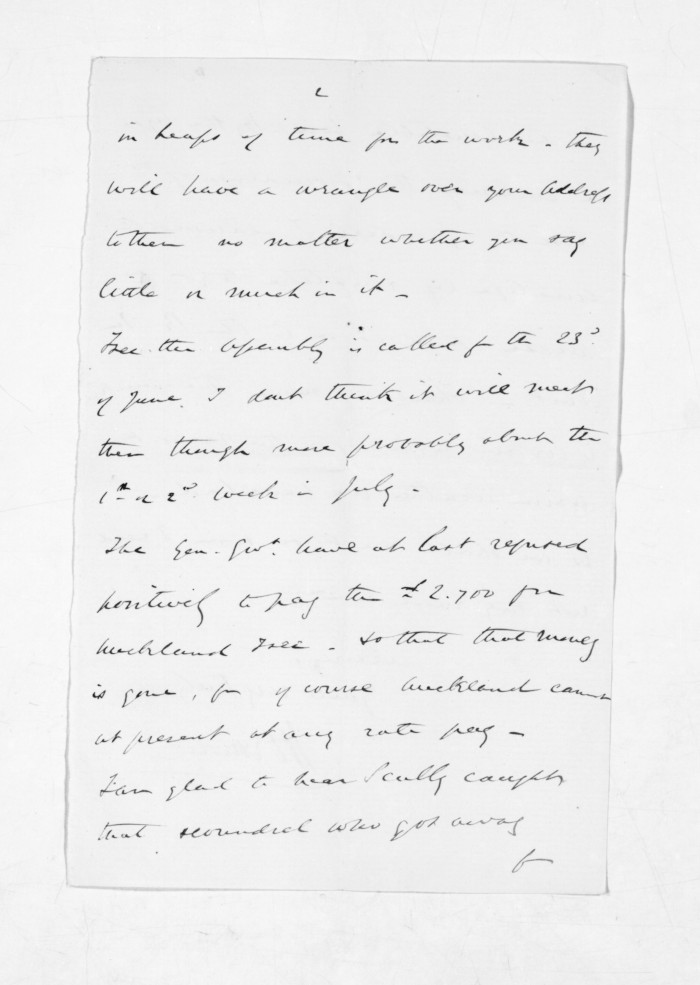 2
in heaps of time for the work - they
will have a wrangle over your address
to them no matter whether you say
little or much in it -
the Assembly is called for the 23d.
of June, I dont think it will meet
then though more probably about the
1st or 2nd. week in July -
The Gen. Govt. have at last refused
positively to pay the £2.700 for
Auckland - So that that money
is gone, for of course Auckland cannot
at present at any rate pay -
I am glad to hear Scully caught
that scoundrel who got away